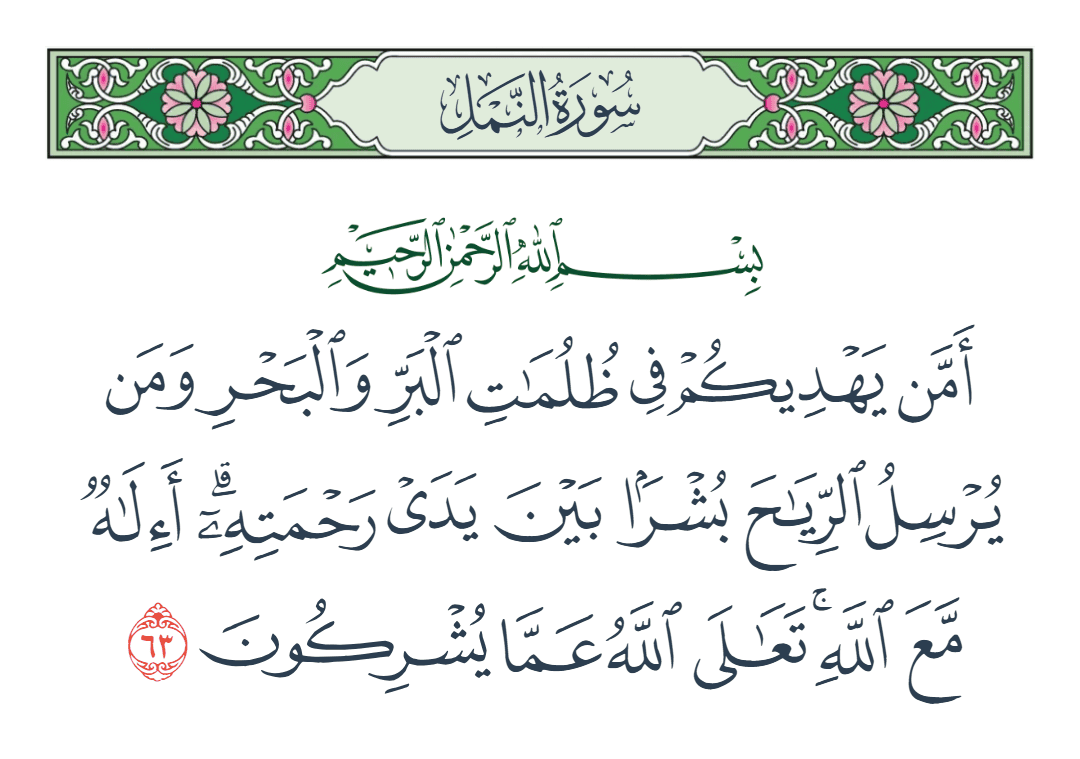 سُورَةُ النَّمۡلِ
بِسۡمِ ٱللَّهِ ٱلرَّحۡمَٰنِ ٱلرَّحِيمِ
أَمَّن يَهۡدِيكُمۡ فِي ظُلُمَٰتِ ٱلۡبَرِّ وَٱلۡبَحۡرِ وَمَن
يُرۡسِلُ ٱلرِّيَٰحَ بُشۡرَۢا بَيۡنَ يَدَيۡ رَحۡمَتِهِۦٓۗ أَءِلَٰهٞ
مَّعَ ٱللَّهِۚ تَعَٰلَى ٱللَّهُ عَمَّا يُشۡرِكُونَ ٦٣